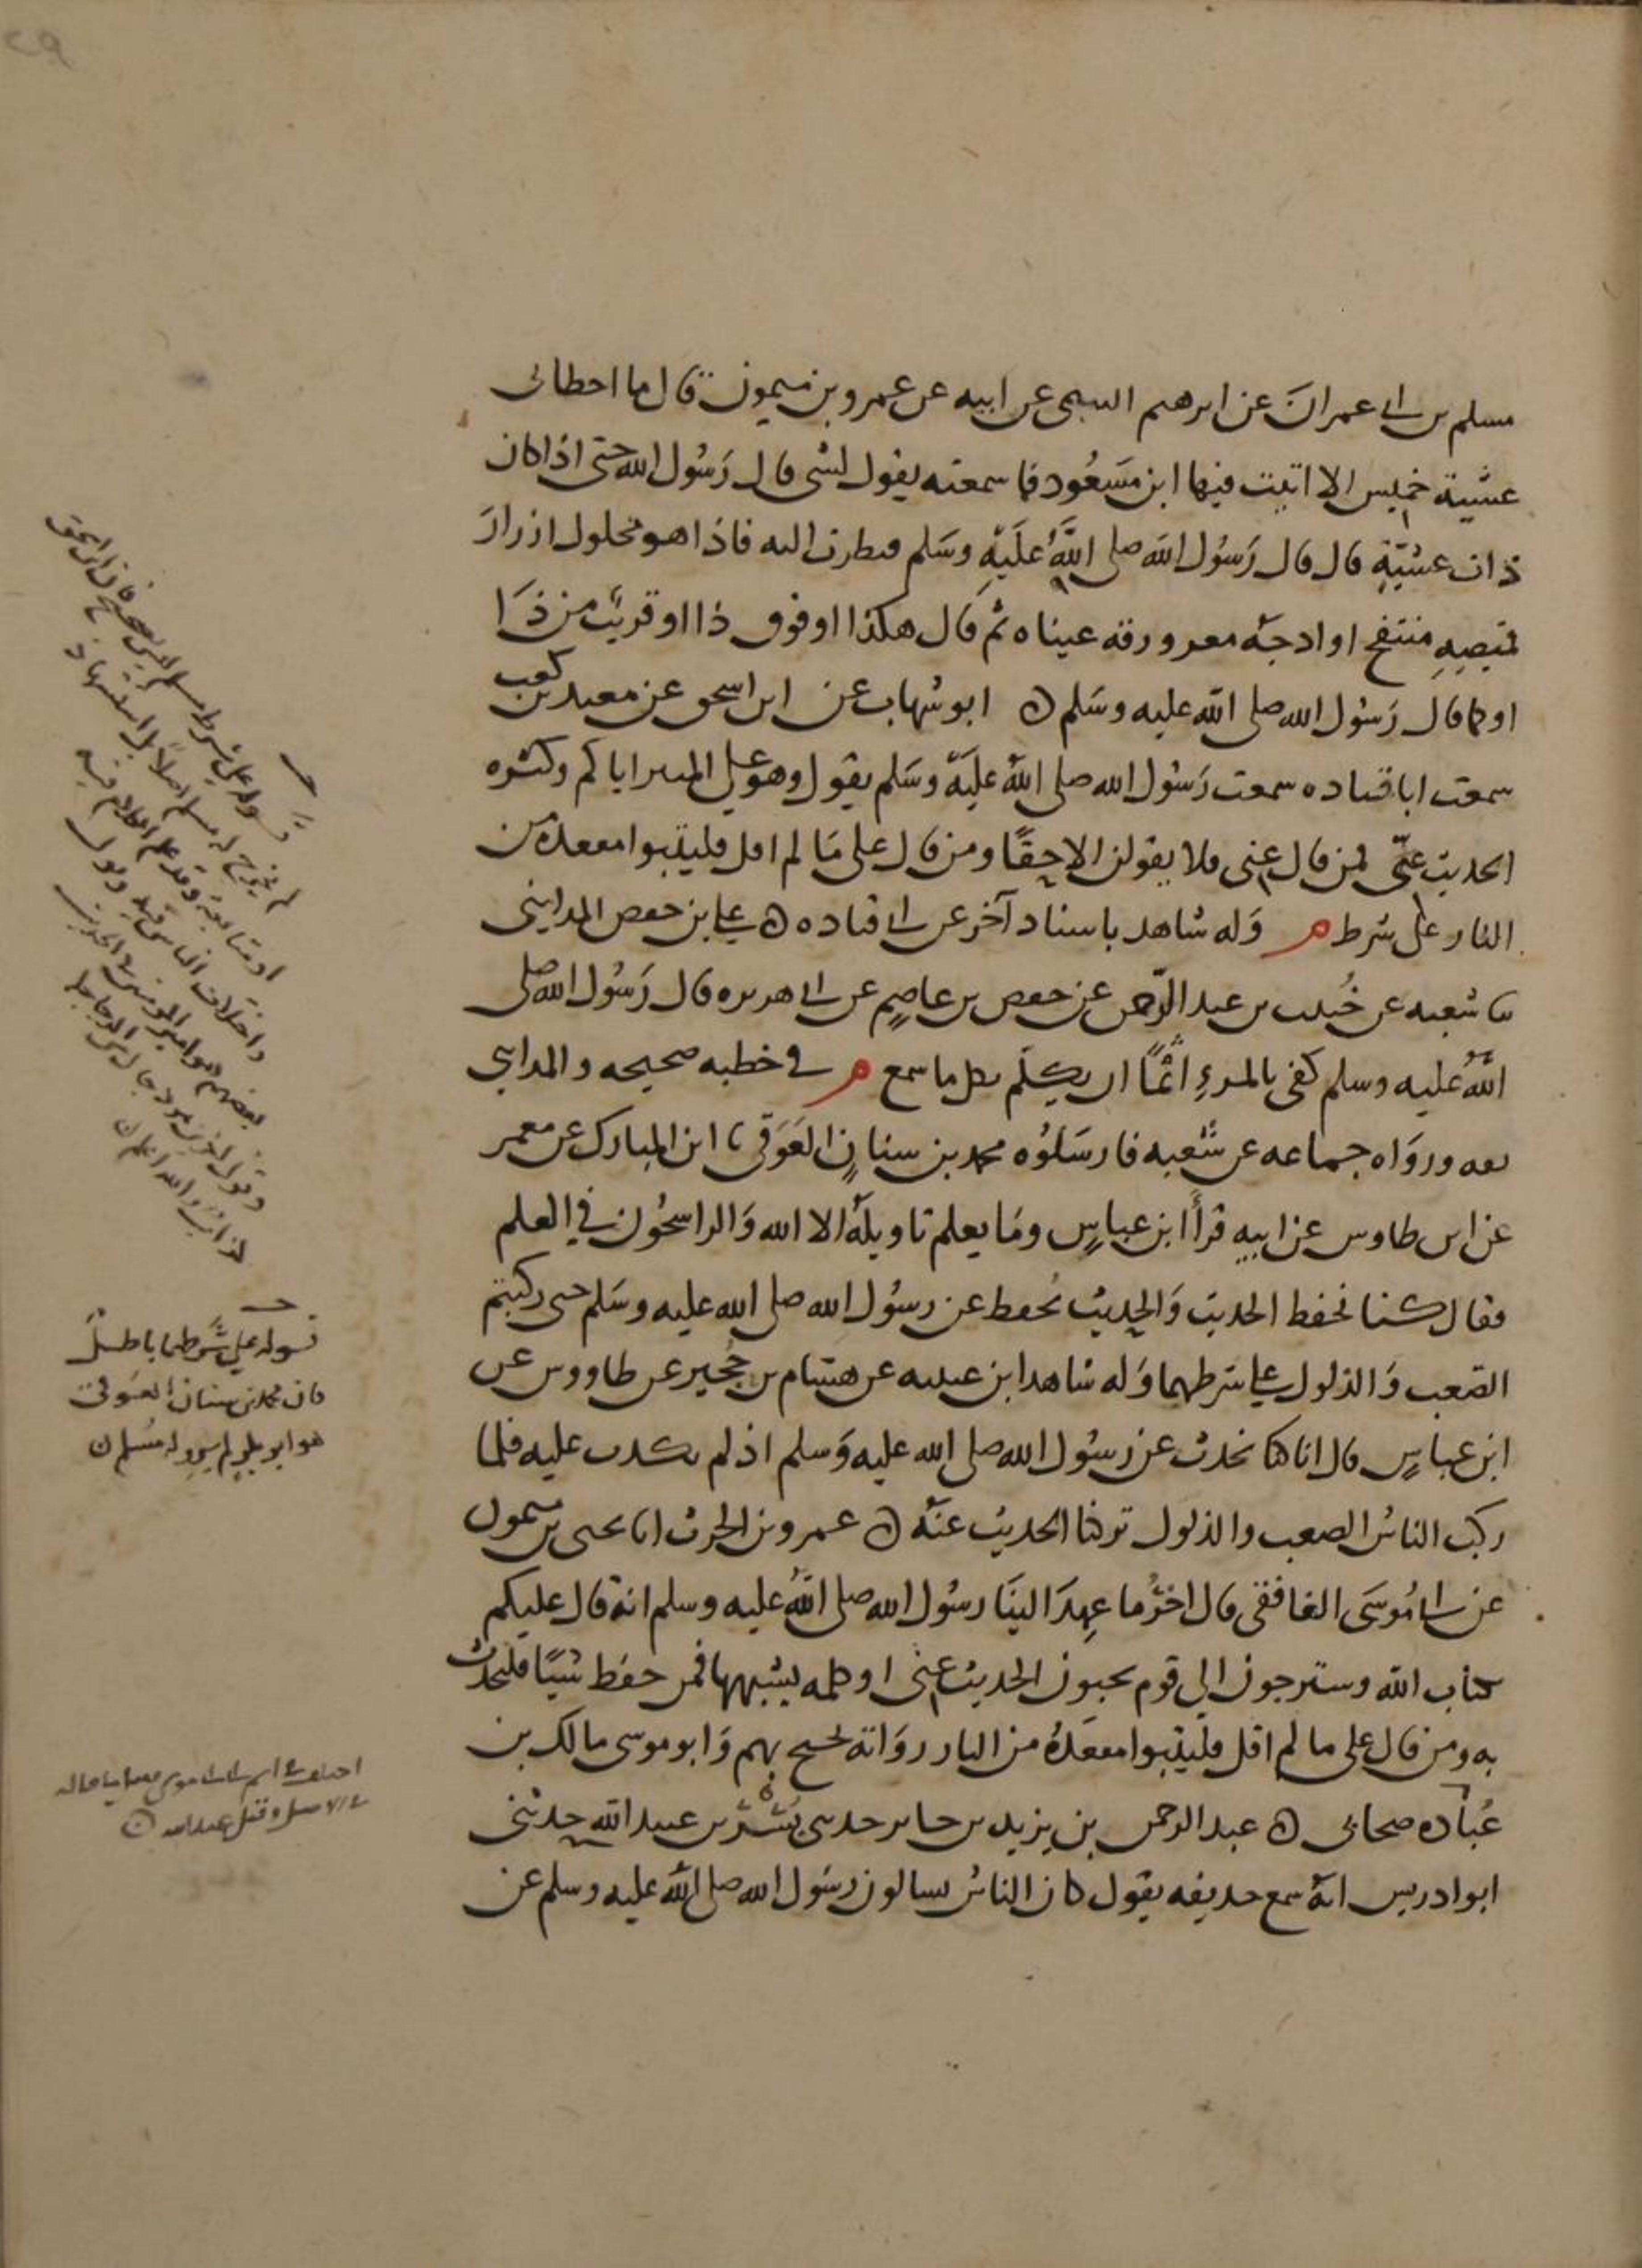 مسلم بن ابي عمران عن ابرهيم التيمي عن ابيه عن عمرو بن ميمون قال ما اخطاني
عشية خميس الا اتيت فيها ابن مسعود فما سمعته يقول لشي قال رسول الله حتى اذا كان
ذات عشية قال قال رسول الله صلى الله عليه وسلم فنظرت اليه فاذا هو محلول ازرار
قميصه منتفخ اوادجه مغرورقة عيناه ثم قال هكذا او فوق ذا او قريب من ذا
او كما قال رسول الله صلى الله عليه وسلم ن ابو شهاب عن ابن اسحق عن معبد بن كعب
سمعت ابا قتاده سمعت رسول الله صلى الله عليه وسلم يقول وهو على المنبر اياكم وكثره
الحديث عني فمن قال عني فلا يقولن الا حقا ومن قال على ما لم اقل فليتبوا مقعده من
النار على شرط م وله شاهد باسناد آخر عن ابي قتاده ن علي بن حفص المدايني
ثنا شعبه عن خبيب بن عبد الرحمن عن حفص بن عاصم عن ابي هريره قال رسول الله صلى
الله عليه وسلم كفى بالمرء اثما ان يتكلم بكل ما سمع م في خطبه صحيحه والمدايني
ثقه ورواه جماعه عن شعبه فارسلوه محمد بن سنان العوقي ثنا ابن المبارك عن معمر
عن ابن طاوس عن ابيه قرأ ابن عباس وما يعلم تاويله الا الله والراسخون في العلم
فقال كنا نحفظ الحديث والحديث يحفظ عن رسول الله صلى الله عليه وسلم حتى ركبتم
الصعب والذلول على شرطهما وله شاهد ابن عيينه عن هشام بن حجير عن طاووس عن
ابن عباس قال انا كنا نحدث عن رسول الله صلى الله عليه وسلم اذ لم يكذب عليه فلما
ركب الناس الصعب والذلول تركنا الحديث عنه ن عمرو بن الحرث انا يحيى بن ميمون
عن ابي موسى الغافقي قال اخر ما عهد الينا رسول الله صلى الله عليه وسلم انه قال عليكم
بكتاب الله وسترجعون الى قوم يحبون الحديث عني او كلمه يشبهها فمن حفظ شيئا فليحدث
به ومن قال على ما لم اقل فليتبوا مقعده من النار رواته يحتج بهم وابو موسى مالك بن
عباده صحابي ن عبد الرحمن بن يزيد بن جابر حدثني بسر بن عبيد الله حدثني
ابو ادريس انه سمع حذيفه يقول كان الناس يسالون رسول الله صلى الله عليه وسلم عن
قوله على شرط مسلم ليس بصحيح فان ابن اسحق
لم يخرج له مسلم اصلا بل استشهادا
قوله على شرطهما باطل
فان محمد بن سنان العوقي
هو ابو بكر لم يرو له مسلم ن